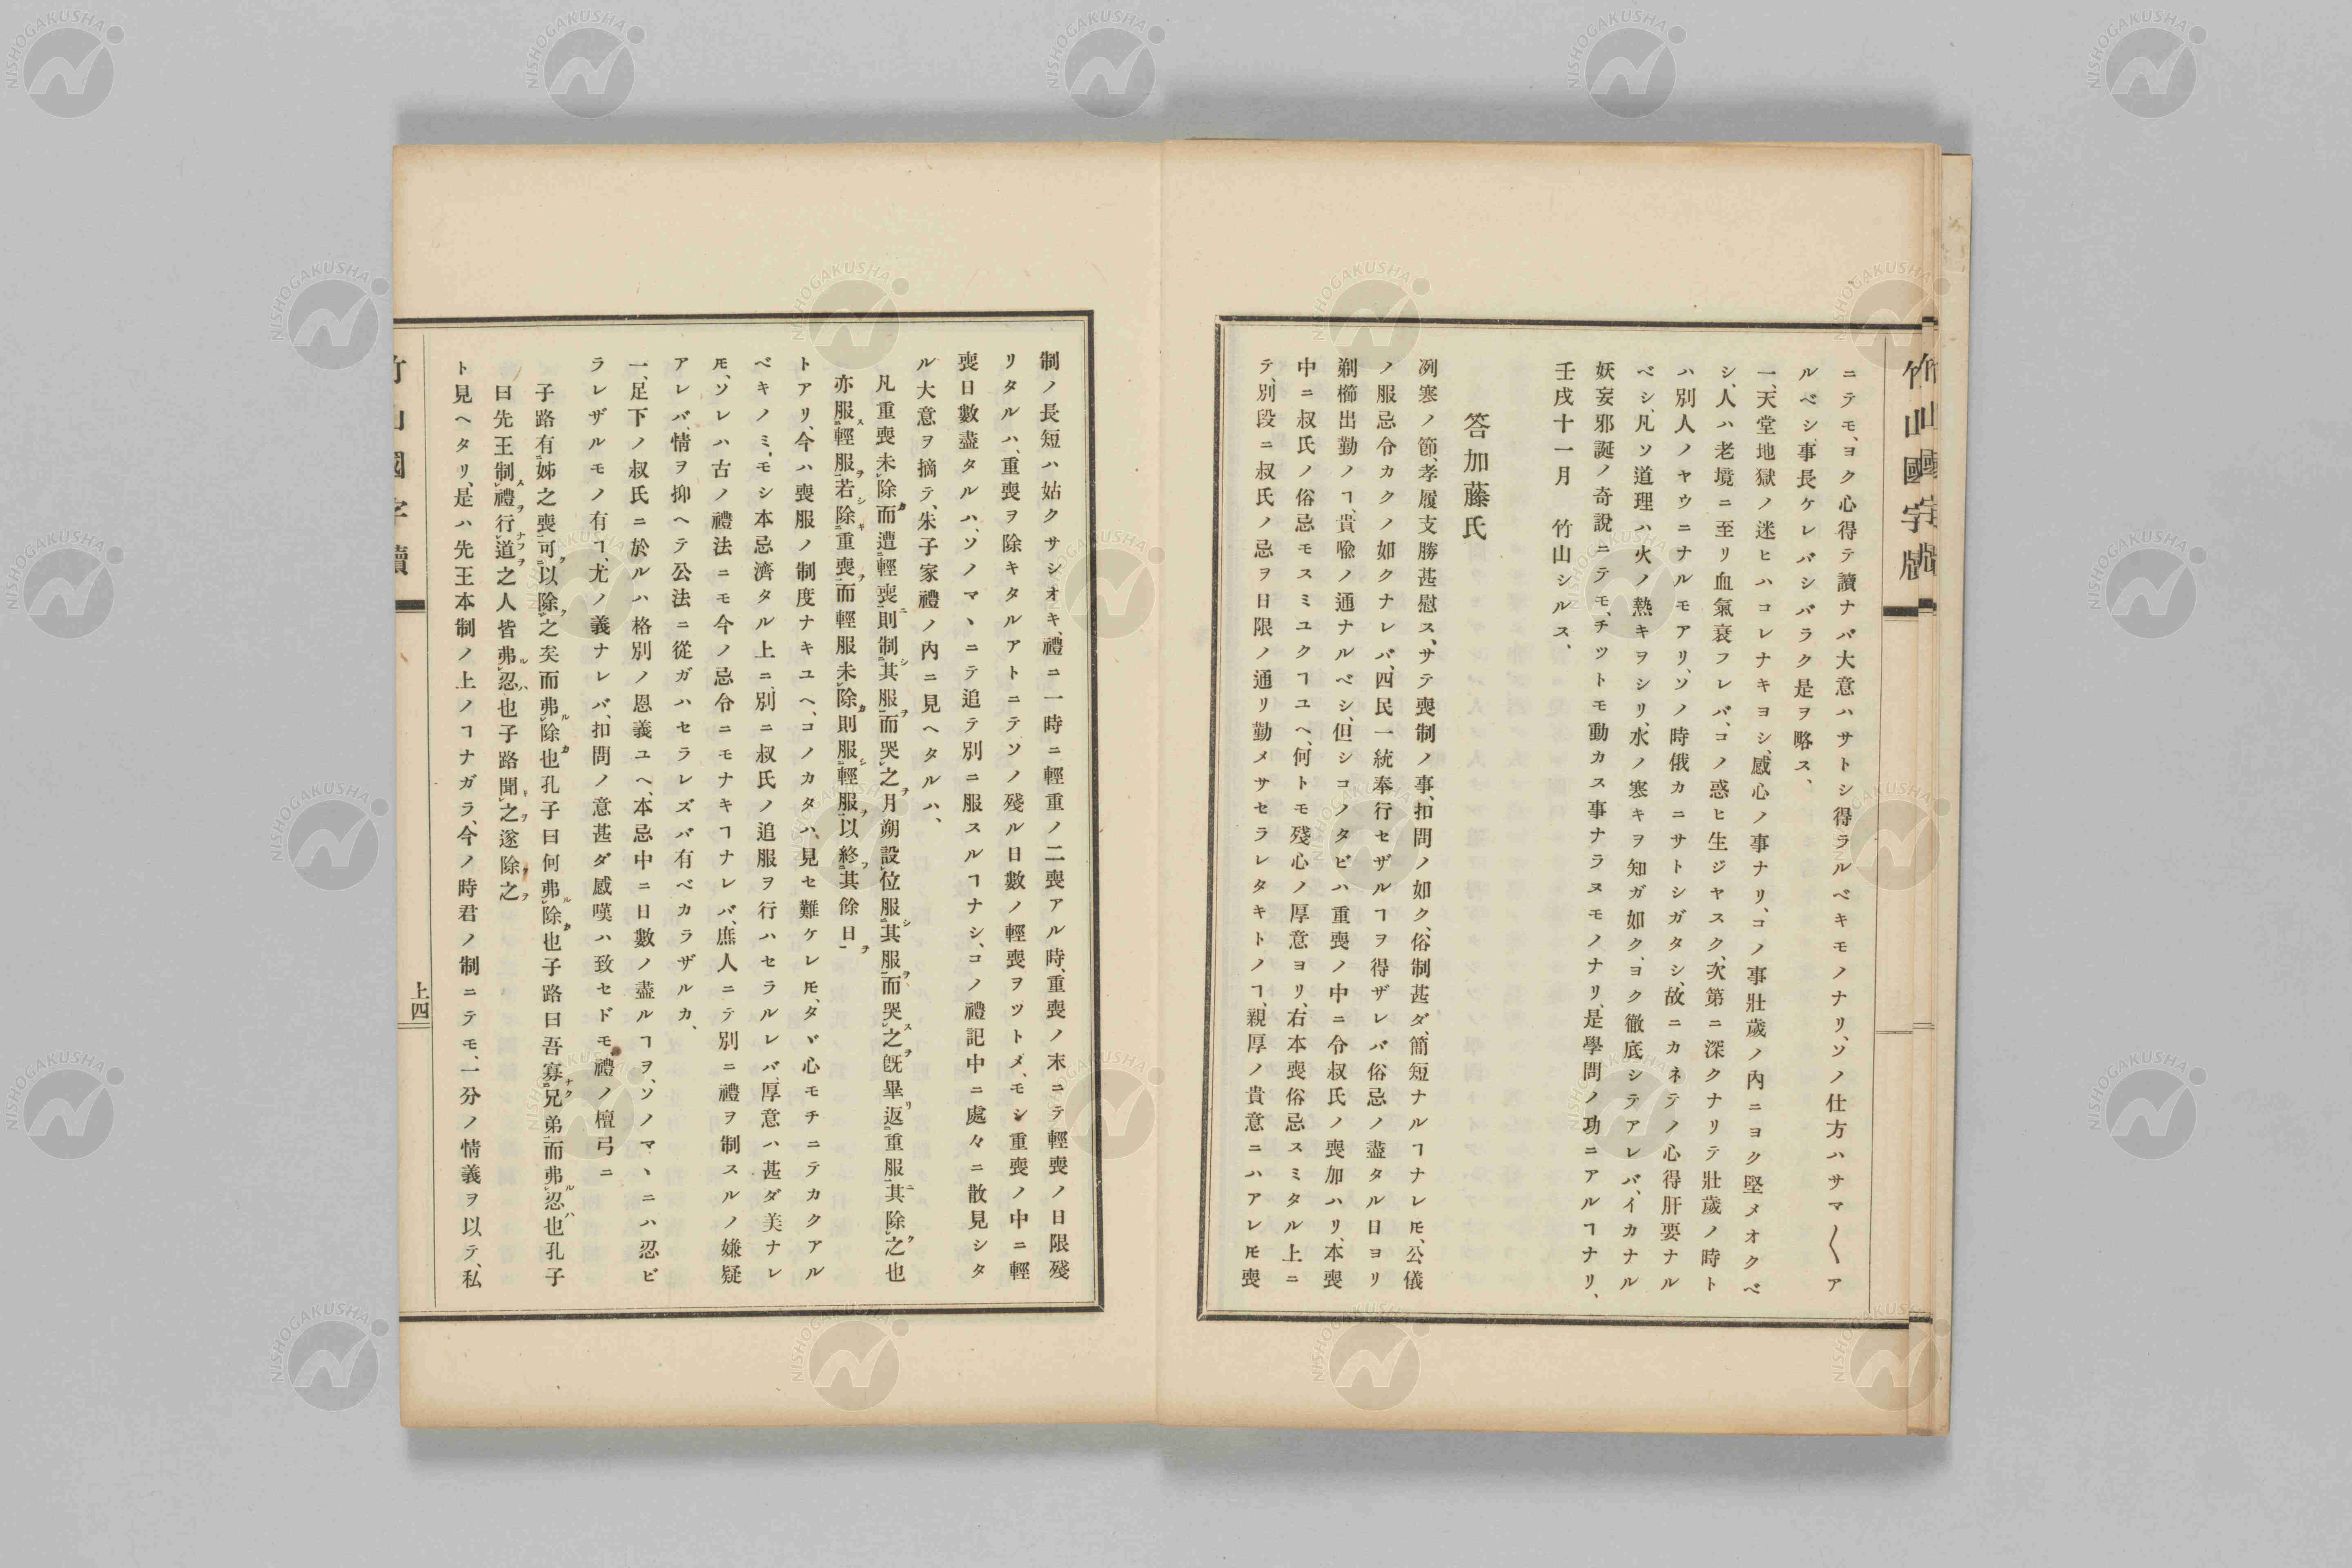 ニテモ、ヨク心得テ讀ナバ大意ハサトシ得ラルベキモノナリ、ソノ仕方ハサマ〱ア
ルベシ、事長ケレバシバラク是ヲ略ス、
一、天堂地獄ノ迷ヒハコレナキヨシ、感心ノ事ナリ、コノ事壯歲ノ內ニヨク堅メオクベ
シ、人ハ老境ニ至リ血氣衰フレバ、コノ惑ヒ生ジヤスク、次第ニ深クナリテ壯歲ノ時ト
ハ別人ノヤウニナルモアリ、ソノ時俄カニサトシガタシ、故ニカネテノ心得肝要ナル
ベシ、凡ソ道理ハ火ノ熱キヲシリ、水ノ寒キヲ知ガ如ク、ヨク徹底シテアレバ、イカナル
妖妄邪誕ノ奇說ニテモ、チツトモ動カス事ナラヌモノナリ、是學問ノ功ニアルヿナリ、
壬戌十一月 竹山シルス、
答加藤氏
冽寒ノ節、孝履支勝甚慰ス、サテ喪制ノ事、扣問ノ如ク、俗制甚ダ、簡短ナルヿナレ𪜈、公儀
ノ服忌令カクノ如クナレバ、四民一統奉行セザルヿヲ得ザレバ俗忌ノ盡タル日ヨリ
剃櫛出勤ノヿ、貴喩ノ通ナルベシ、但シコノタビハ重喪ノ中ニ令叔氏ノ喪加ハリ、本喪
中ニ叔氏ノ俗忌モスミユクヿユヘ、何トモ殘心ノ厚意ヨリ、右本喪俗忌スミタル上ニ
テ、別段ニ叔氏ノ忌ヲ日限ノ通リ勤メサセラレタキトノヿ、親厚ノ貴意ニハアレ𪜈喪
制ノ長短ハ姑クサシオキ、禮ニ一時ニ輕重ノ二喪アル時、重喪ノ末ニテ輕喪ノ日限殘
リタルハ、重喪ヲ除キタルアトニテ、ソノ殘ル日數ノ輕喪ヲツトメ、モシ重喪ノ中ニ輕
喪日數盡タルハ、ソノマヽニテ追テ別ニ服スルヿナシ、コノ禮記中ニ處々ニ散見シタ
ル大意ヲ摘テ、朱子家禮ノ內ニ見ヘタルハ、
凡重喪未除而遭輕喪則制其服而哭之月朔設位服其服而哭之旣畢返重服其除之也
亦服輕服若除重喪而輕服未除則服輕服以終其餘日
トアリ、今ハ喪服ノ制度ナキユヘ、コノカタハ、見セ難ケレ𪜈、タヾ心モチニテカクアル
ベキノミ、モシ本忌濟タル上ニ、別ニ叔氏ノ追服ヲ行ハセラルレバ、厚意ハ甚ダ美ナレ
𪜈、ソレハ古ノ禮法ニモ今ノ忌令ニモナキヿナレバ、庶人ニテ別ニ禮ヲ制スルノ嫌疑
アレバ、情ヲ抑ヘテ公法ニ從ガハセラレズバ有ベカラザルカ、
一、足下ノ叔氏ニ於ルハ格別ノ恩義ユヘ、本忌中ニ日數ノ盡ルヿヲ、ソノマヽニハ忍ビ
ラレザルモノ有ヿ、尤ノ義ナレバ、扣問ノ意甚ダ感嘆ハ致セドモ、禮ノ檀弓ニ
子路有姊之喪可以除之矣而弗除也孔子曰何弗除也子路曰吾寡兄弟而弗忍也孔子
曰先王制禮行道之人皆弗忍也子路聞之遂除之
ト見ヘタリ、是ハ先王本制ノ上ノヿナガラ、今ノ時君ノ制ニテモ、一分ノ情義ヲ以テ、私
上四